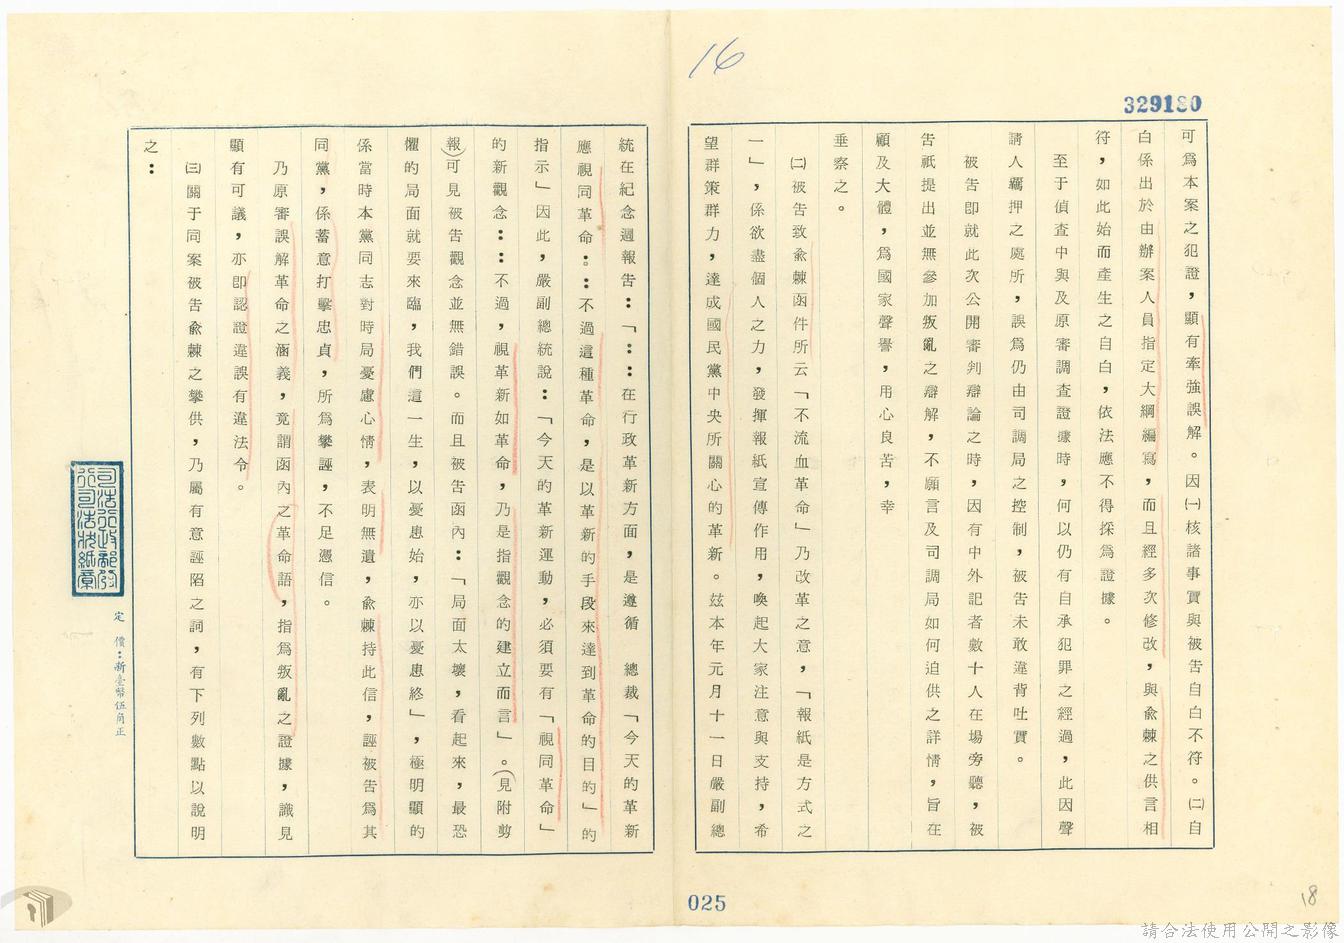 16
329180
可為本案之犯證，顯有牽強誤解。因㈠核諸事實與被告自白不符。㈡自
白係出於由辦案人員指定大綱編寫，而且經多次修改，與兪棘之供言相
符，如此始而產生之自白，依法應不得採為證據。
至于偵查中與及原審調查證據時，何以仍有自承犯罪之經過，此因聲
請人羈押之處所，誤為仍由司調局之控制，被告未敢違背吐實。
被告即就此次公開審判辯論之時，因有中外記者數十人在場旁聽，被
告祇提出並無參加叛亂之辯解，不願言及司調局如何迫供之詳情，旨在
顧及大體，為國家聲譽，用心良苦，幸
垂察之。
㈡被告致兪棘函件所云「不流血革命」乃改革之意，「報紙是方式之
一」，係欲盡個人之力，發揮報紙宣傳作用，喚起大家注意與支持，希
望群策群力，達成國民黨中央所關心的革新。茲本年元月十一日嚴副總
統在紀念週報告：「：：在行政革新方面，是遵循　總裁「今天的革新
應視同革命：：不過這種革命，是以革新的手段來達到革命的目的」的
指示」因此，嚴副總統說：「今天的革新運動，必須要有「視同革命」
的新觀念：：不過，視革新如革命，乃是指觀念的建立而言」。（見附剪
報）可見被告觀念並無錯誤。而且被告函內：「局面太壞，看起來，最恐
懼的局面就要來臨，我們這一生，以憂患始，亦以憂患終」，極明顯的
係當時本黨同志對時局憂慮心情，表明無遺，兪棘持此信，誣被告為其
同黨，係蓄意打擊忠貞，所為攀誣，不足憑信。
乃原審誤解革命之涵義，竟謂函內之革命語，指為叛亂之證據，識見
顯有可議，亦即認證違誤有違法令。
㈢關于同案被告兪棘之攀供，乃屬有意誣陷之詞，有下列數點以說明
之：
司法行政部發
行司法狀紙章
定價：新臺幣伍角正
025
18
請合法使用公開之影像